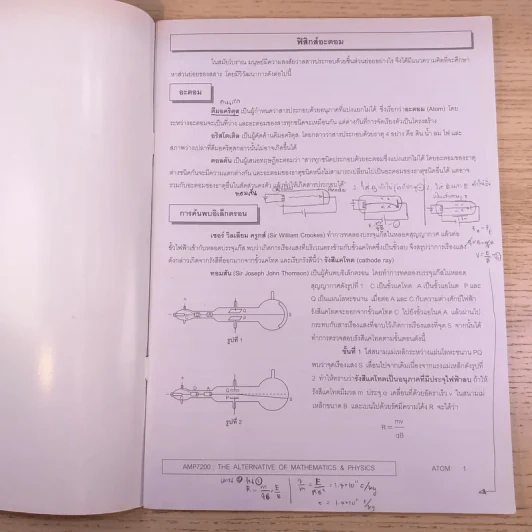 ฟิสิกส์อะตอม
ในสมัยโบราณ มนุษย์มีความสงสัยว่าสสารประกอบด้วยชิ้นส่วนย่อยอย่างไร จึงได้มีแนวความคิดที่จะศึกษา
หาส่วนย่อยของสสาร โดยมีวิวัฒนาการดังต่อไปนี้
อะตอม
ดีมอคริตุส เป็นผู้กำหนดว่าสารประกอบด้วยอนุภาคที่แบ่งแยกไม่ได้ ซึ่งเรียกว่าอะตอม (Atom) โดย
ระหว่างอะตอมจะเป็นที่ว่าง และอะตอมของสารทุกชนิดจะเหมือนกัน แต่ต่างกันที่การจัดเรียงตัวเป็นโครงสร้าง
อริสโตเติล เป็นผู้คัดค้านดีมอคริตุส โดยกล่าวว่าสารประกอบด้วยธาตุ 4 อย่าง คือ ดิน น้ำ ลม ไฟ และ
สภาพว่างเปล่าที่ดีมอคริตุสกล่าวนั้นไม่อาจเกิดขึ้นได้
ดอลตัน เป็นผู้เสนอทฤษฎีอะตอมว่า "สารทุกชนิดประกอบด้วยอะตอมซึ่งแบ่งแยกไม่ได้ โดยอะตอมของธาตุ
ต่างชนิดกันจะมีความแตกต่างกัน และอะตอมของธาตุชนิดหนึ่งไม่สามารถเปลี่ยนไปเป็นอะตอมของธาตุชนิดอื่นได้ แต่อาจ
รวมกับอะตอมของธาตุอื่นในสัดส่วนคงตัว แล้วทำให้เกิดสารประกอบได้"
การค้นพบอิเล็กตรอน
เซอร์ วิลเลียม ครูกส์ (Sir William Crookes) ทำการทดลองบรรจุก๊าซในหลอดสุญญากาศ แล้วต่อ
ขั้วไฟฟ้าเข้ากับหลอดบรรจุก๊าซ พบว่าเกิดการเรืองแสงที่บริเวณตรงข้ามกับขั้วแคโทดซึ่งเป็นขั้วลบ จึงสรุปว่าการเรืองแสง
ดังกล่าวเกิดจากรังสีที่ออกมาจากขั้วแคโทด และเรียกรังสีนี้ว่า รังสีแคโทด (cathode ray)
ทอมสัน (Sir Joseph John Thomson) เป็นผู้ค้นพบอิเล็กตรอน โดยทำการทดลองบรรจุก๊าซในหลอด
สุญญากาศดังรูปที่ 1 C เป็นขั้วแคโทด A เป็นขั้วแอโนด P และ
Q เป็นแผ่นโลหะขนาน เมื่อต่อ A และ C กับความต่างศักย์ไฟฟ้า
รังสีแคโทดจะออกจากขั้วแคโทด C ไปยังขั้วแอโนด A แล้วผ่านไป
กระทบกับสารเรืองแสงที่ฉาบไว้เกิดการเรืองแสงที่จุด S จากนั้นได้
ทำการตรวจสอบรังสีแคโทดตามขั้นตอนดังนี้
รูปที่ 1
ขั้นที่ 1 ใส่สนามแม่เหล็กระหว่างแผ่นโลหะขนาน PQ
พบว่าจุดเรืองแสง S เลื่อนไปจากเดิมเนื่องจากแรงแม่เหล็กดังรูปที่
2 ทำให้ทราบว่ารังสีแคโทดเป็นอนุภาคที่มีประจุไฟฟ้าลบ ถ้าให้
รังสีแคโทดมีมวล m ประจุ q เคลื่อนที่ด้วยอัตราเร็ว v ในสนามแม่
เหล็กขนาด B และเบนไปด้วยรัศมีความโค้ง R จะได้ว่า
รูปที่ 2
R = mv/qB
AMP7200 ; THE ALTERNATIVE OF MATHEMATICS & PHYSICS
ATOM 1